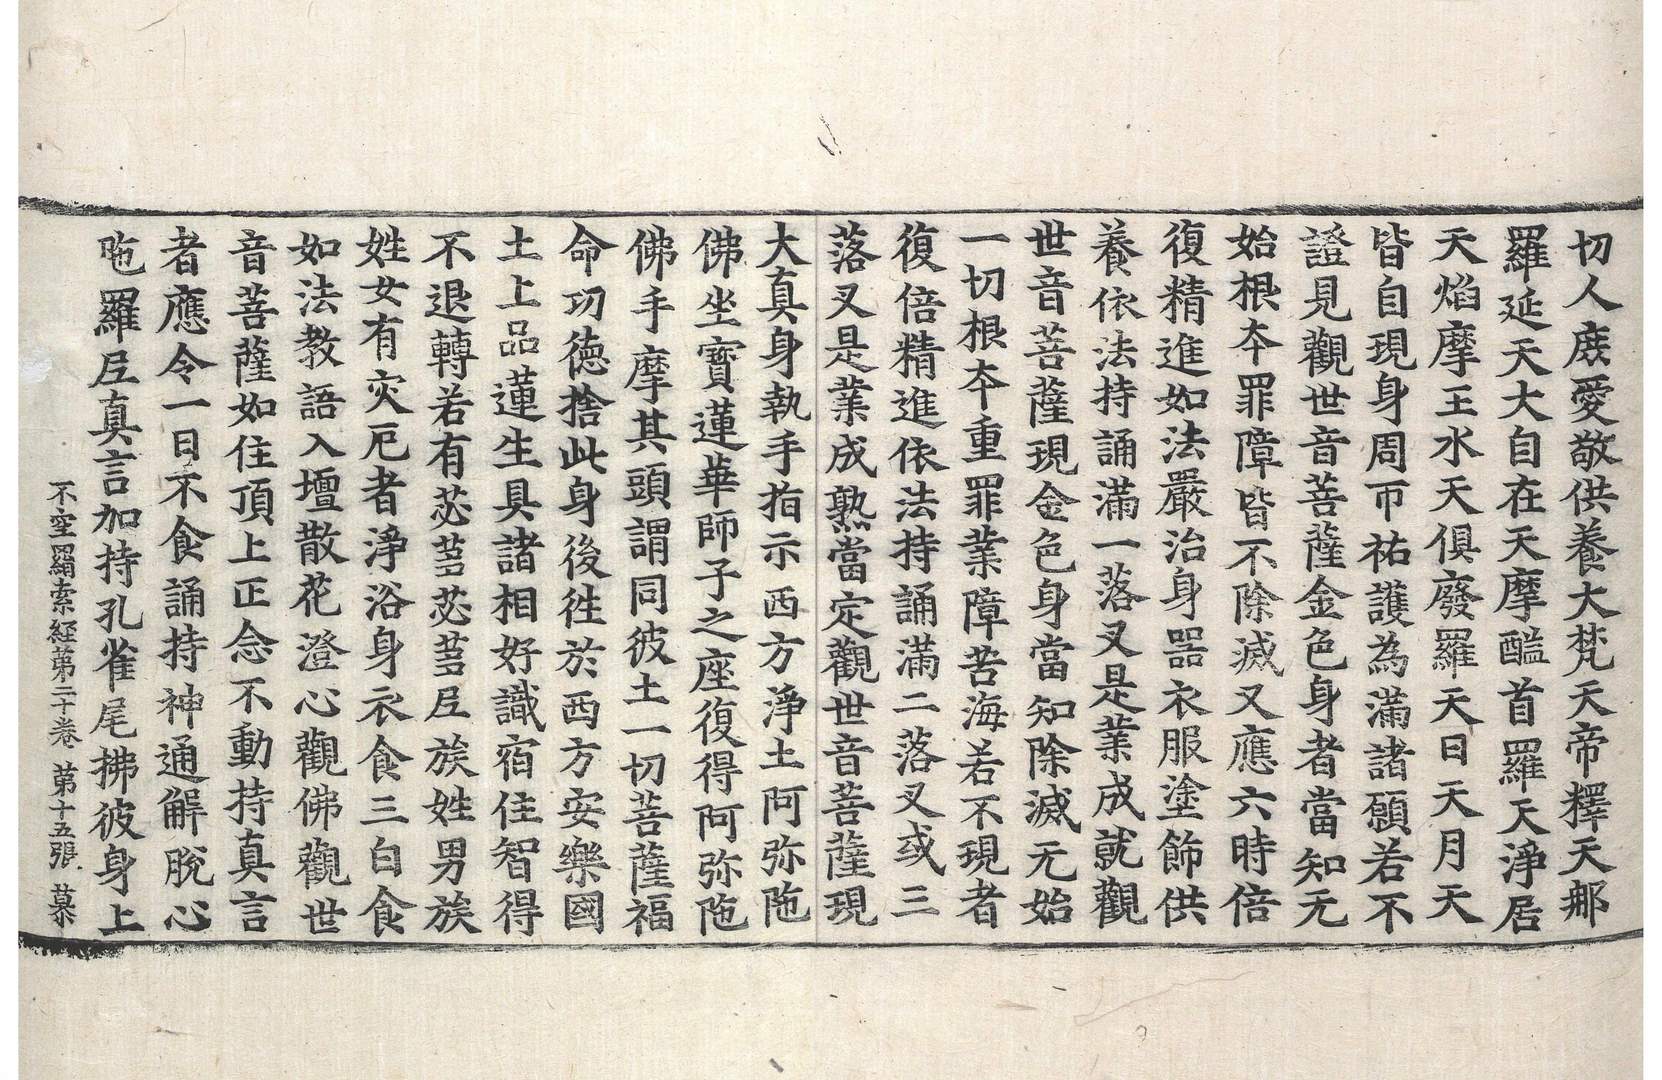 切人庻愛敬供養大梵天帝釋天郍
羅延天大自在天摩醯首羅天淨居
天焰摩王水天俱廢羅天日天月天
皆自現身周帀祐護為滿諸願若不
證見觀世音菩薩金色身者當知无
始根夲罪障皆不除滅又應六時倍
復精進如法嚴治身器衣服塗飾供
養依法持誦滿一落叉是業成就觀
世音菩薩現金色身當知除滅无始
一切根夲重罪業障苦海若不現者
復倍精進依法持誦滿二落叉或三
落叉是業成熟當定觀世音菩薩現
大真身執手指示西方淨土阿弥陁
佛坐寶蓮華師子之座復得阿弥陁
佛手摩其頭謂同彼土一切菩薩福
命功德捨此身後徃於西方安樂國
土上品蓮生具諸相好識宿住智得
不退轉若有苾蒭苾蒭𡰱族姓男族
姓女有灾厄者淨浴身衣食三白食
如法教語入壇散花澄心觀佛觀世
音菩薩如住頂上正念不動持真言
者應令一日不食誦持神通解脫心
陁羅𡰱真言加持孔雀尾拂彼身上
不空羂索経苐二十卷 苐十五張 慕